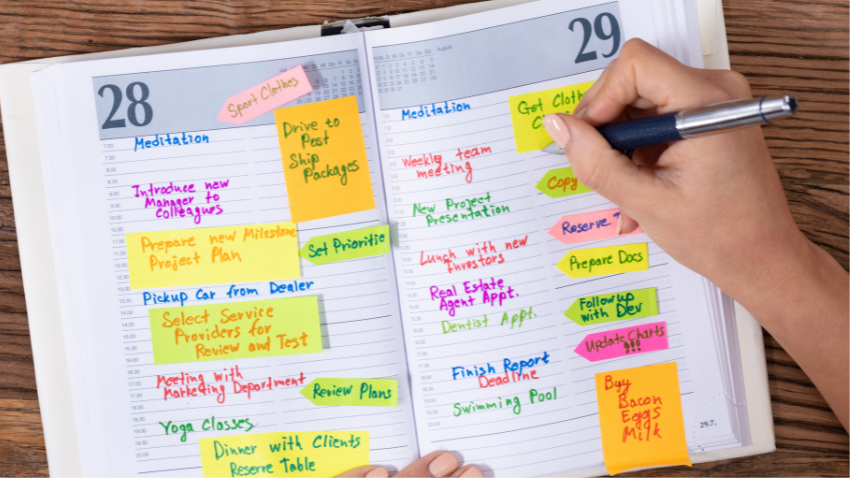 28
Sport Clothes
Meditation
Drive to
Post
Ship
Packages
Introduce new
Manager to
Colleagues
Prepare new Milestone
Project Plan
Set Prioritie
Pickup Car from Dealer
Select Service
Providers for
Review and Test
Meeting with
Marketing Department
Review Plans
Yoga Classes
Dinner with Clients
Reserve Table
August
29
Meditation
Get
Weekly team
meeting
Copy
New Project
Presentation
Reserve
Lunch with new
Investors
Prepare Docs
Real Estate
Agent Appt.
Follow up
with Dev
Dentist Appt.
Update Charts
!!!
Finish Report
Deadline
Swimming Pool
Buy
Bacon
Eggs
Milk
29.7.